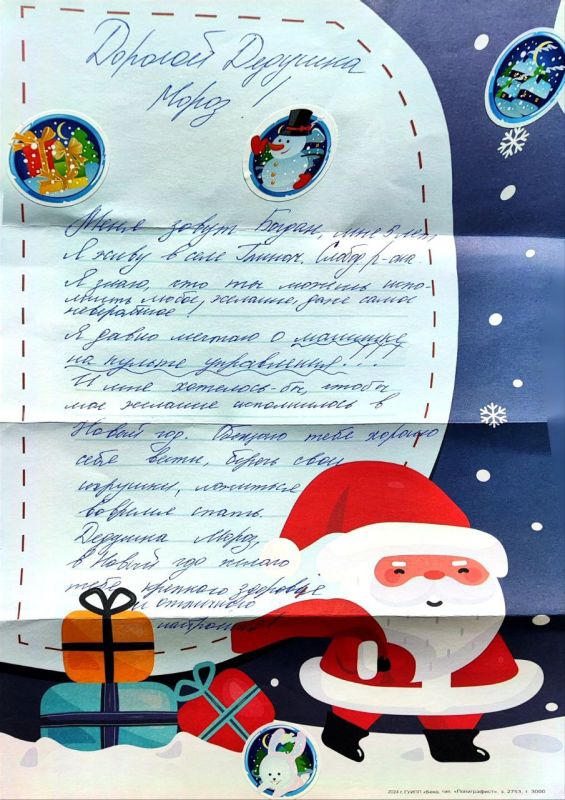 Дорогой Дедушка
Мороз!
Меня зовут Богдан, мне 5 лет
Я живу в селе Глиное Слобод р-она.
Я знаю, что ты можешь испо-
лнить любое желание, даже самое
невероятное!
Я давно мечтаю о машинке
на пульте управления...
И мне хотелось-бы, чтобы
мое желание исполнилось в
Новый год. Обещаю тебе хорошо
себя вести, беречь свои
игрушки, ложиться
вовремя спать.
Дедушка Мороз,
в Новый год желаю
тебе крепкого здоровье
и отличного
настроения!
2024 г. ГУИПП «Бендерская тип. «Полиграфист», з. 2753, т. 3000